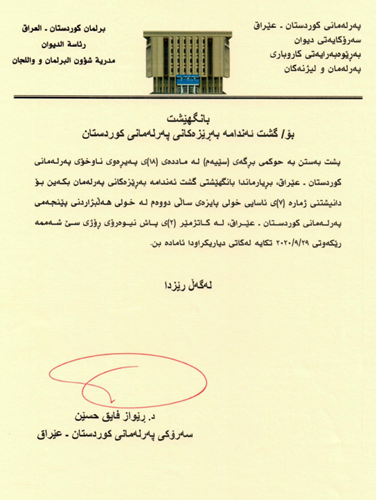 پەرلەمانی کوردستان - عێراق
سەرۆکایەتی دیوان
بەڕێوەبەرایەتی کاروباری
پەرلەمان و لیژنەکان
برلمان كوردستان - العراق
رئاسة الديوان
مديرية شؤون البرلمان و واللجان
بانگهێشت
بۆ/ گشت ئەندامە بەڕێزەکانی پەرلەمانی کوردستان
پشت بەستن بە حوکمی بڕگەی (سێیەم) لە ماددەی (١٨)ی پەیڕەوی ناوخۆی پەرلەمانی
کوردستان - عێراق، بڕیارماندا بانگهێشتی گشت ئەندامە بەڕێزەکانی پەرلەمان بکەین بۆ
دانیشتنی ژمارە (٧)ی ئاسایی خولی پایزەی ساڵی دووەم لە خولی هەڵبژاردنی پێنجەمی
پەرلەمانی کوردستان - عێراق، لە کاتژمێر (٢)ی پاش نیوەڕۆی ڕۆژی سێ شەممە
رێکەوتی ٢٠٢٠/٩/٢٩ تکایە لەکاتی دیاریکراودا ئامادە بن.
لەگەڵ رێزدا
د. ڕێواز فایق حسێن
سەرۆکی پەرلەمانی کوردستان - عێراق